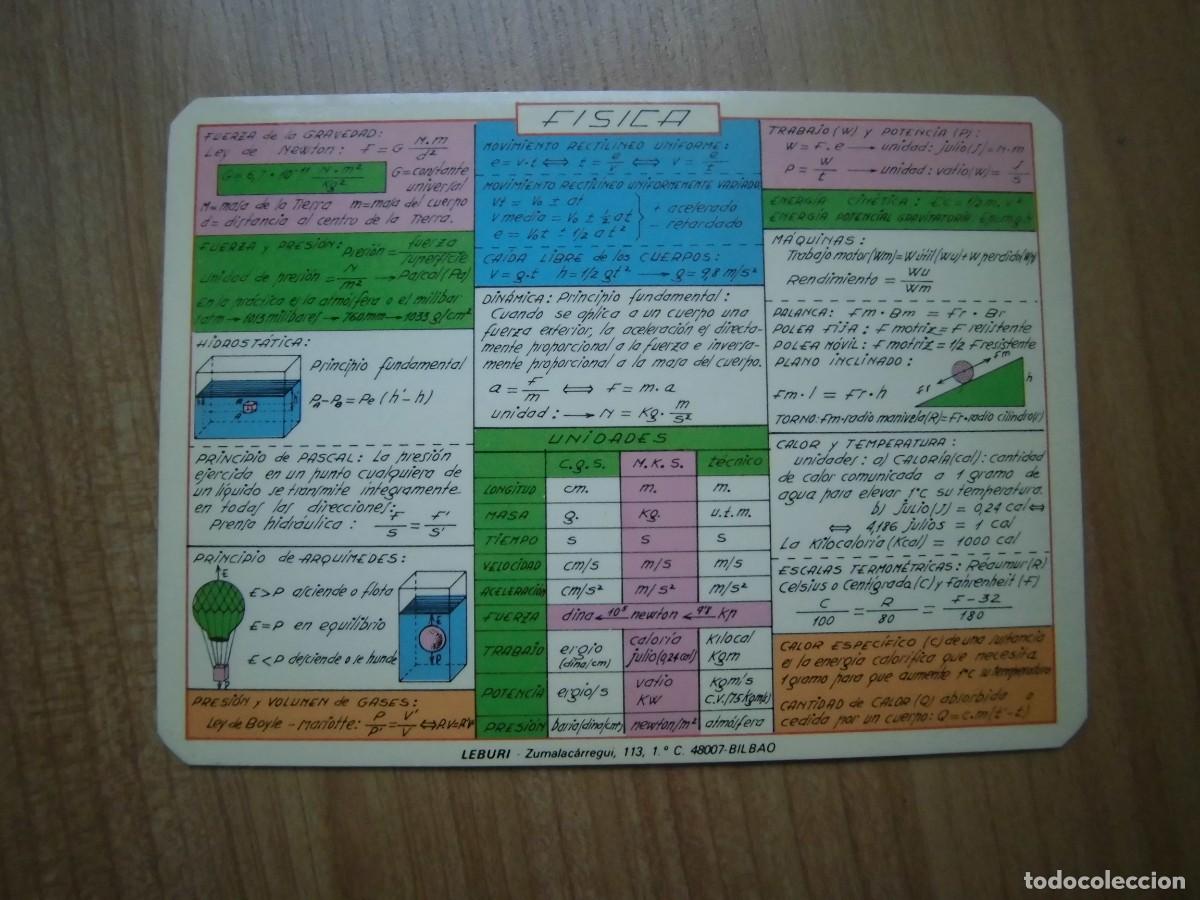 FISICA
FUERZA de la GRAVEDAD:
Ley de Newton: F = G M.m/d²
G = 6,7 · 10⁻¹¹ N·m²/Kg² G = constante
universal
M = masa de la Tierra m = masa del cuerpo
d = distancia al centro de la Tierra.
FUERZA y PRESIÓN: Presión = fuerza/superficie
unidad de presión = N/m² → Pascal (Pa)
En la práctica es la atmósfera o el milibar
1 atm → 1013 milibares → 760mm → 1033 g/cm²
HIDROSTÁTICA:
Principio fundamental
PA - PB = Pe (h' - h)
A
B
PRINCIPIO de PASCAL: La presión
ejercida en un punto cualquiera de
un líquido se transmite íntegramente
en todas las direcciones:
Prensa hidráulica: F/S = F'/S'
PRINCIPIO de ARQUÍMEDES:
E
E > P asciende o flota
E = P en equilibrio
E < P desciende o se hunde
P
E
P
PRESIÓN y VOLUMEN de GASES:
Ley de Boyle - Mariotte: P/P' = V'/V ⇔ P.V = P'.V'
MOVIMIENTO RECTILINEO UNIFORME:
e = v·t ⇔ t = e/v ⇔ v = e/t
MOVIMIENTO RECTILINEO UNIFORMEMENTE VARIADO
Vt = Vo ± at
V media = Vo ± ½ at
e = Vot ± 1/2 at²
+ acelerado
- retardado
CAIDA LIBRE de los CUERPOS:
v = g·t h = 1/2 gt² → g = 9,8 m/s²
DINÁMICA: Principio fundamental:
Cuando se aplica a un cuerpo una
fuerza exterior, la aceleración es directa-
mente proporcional a la fuerza e inversa-
mente proporcional a la masa del cuerpo.
a = F/m ⇔ F = m.a
unidad: → N = Kg· m/s²
UNIDADES
C.G.S. M.K.S. técnico
LONGITUD cm. m. m.
MASA g. Kg. u.t.m.
TIEMPO s s s
VELOCIDAD cm/s m/s m/s
ACELERACIÓN cm/s² m/s² m/s²
FUERZA dina ← 10⁵ newton ← 9'8 Kp
TRABAJO ergio (dina/cm) caloría julio (0,24 cal) Kilocal Kgm
POTENCIA ergio/s vatio KW Kgm/s C.V. (75 Kgm/s)
PRESIÓN baria (dina/cm²) newton/m² atmósfera
TRABAJO (W) y POTENCIA (P):
W = F. e → unidad: julio (J) = N·m
P = W/t → unidad: vatio (W) = J/s
ENERGIA CINÉTICA: Ec = 1/2 m. v²
ENERGIA POTENCIAL GRAVITATORIA: Ep = m.g.h
MÁQUINAS:
Trabajo motor (Wm) = W útil (Wu) + W perdido (Wp)
Rendimiento = Wu/Wm
PALANCA: Fm · Bm = Fr · Br
POLEA FIJA: F motriz = F resistente
POLEA MÓVIL: F motriz = 1/2 F resistente
PLANO INCLINADO:
Fm · l = Fr · h
Fm
Fr
h
TORNO: Fm·radio manivela (R) = Fr·radio cilindro (r)
CALOR y TEMPERATURA:
unidades: a) CALORÍA (cal): cantidad
de calor comunicada a 1 gramo de
agua para elevar 1°C su temperatura.
b) Julio (J) = 0,24 cal ⇔
⇔ 4,186 julios = 1 cal
La Kilocaloría (Kcal) = 1000 cal
ESCALAS TERMOMÉTRICAS: Réaumur (R)
Celsius o Centígrada (C) y Fahrenheit (F)
C/100 = R/80 = F - 32/180
CALOR ESPECÍFICO (C) de una sustancia
es la energía calorífica que necesita
1 gramo para que aumente 1°C su temperatura
CANTIDAD de CALOR (Q) absorbida o
cedida por un cuerpo: Q = c.m (t' - t)
LEBURI - Zumalacárregui, 113, 1.º C. 48007-BILBAO
todocoleccion